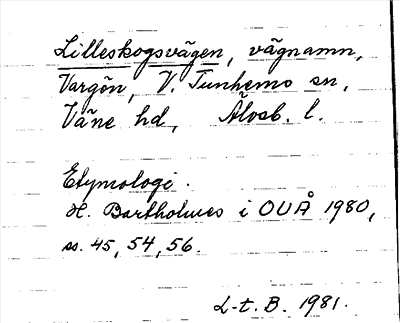 Lilleskogsvägen, vägnamn,
Vargön, V. Tunhems sn,
Väne hd, Älvsb. l.
Etymologi.
H. Bartholmes i OUÅ 1980,
ss. 45, 54, 56.
L-t. B. 1981.